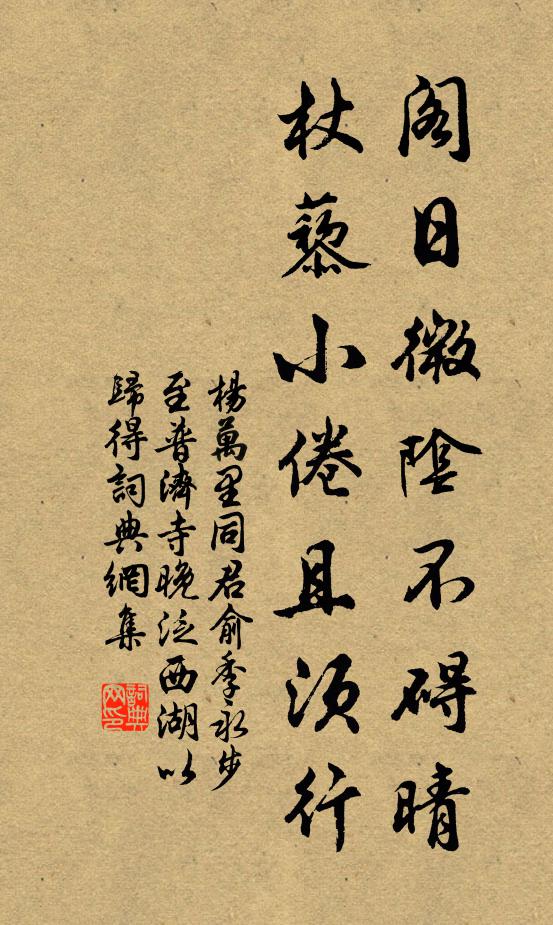 阁日微陰不碍晴
杖藜小倦且須行
楊萬里同君俞季永步
至普濟寺晚泛西湖以
歸得詞典網集
詞典
网印